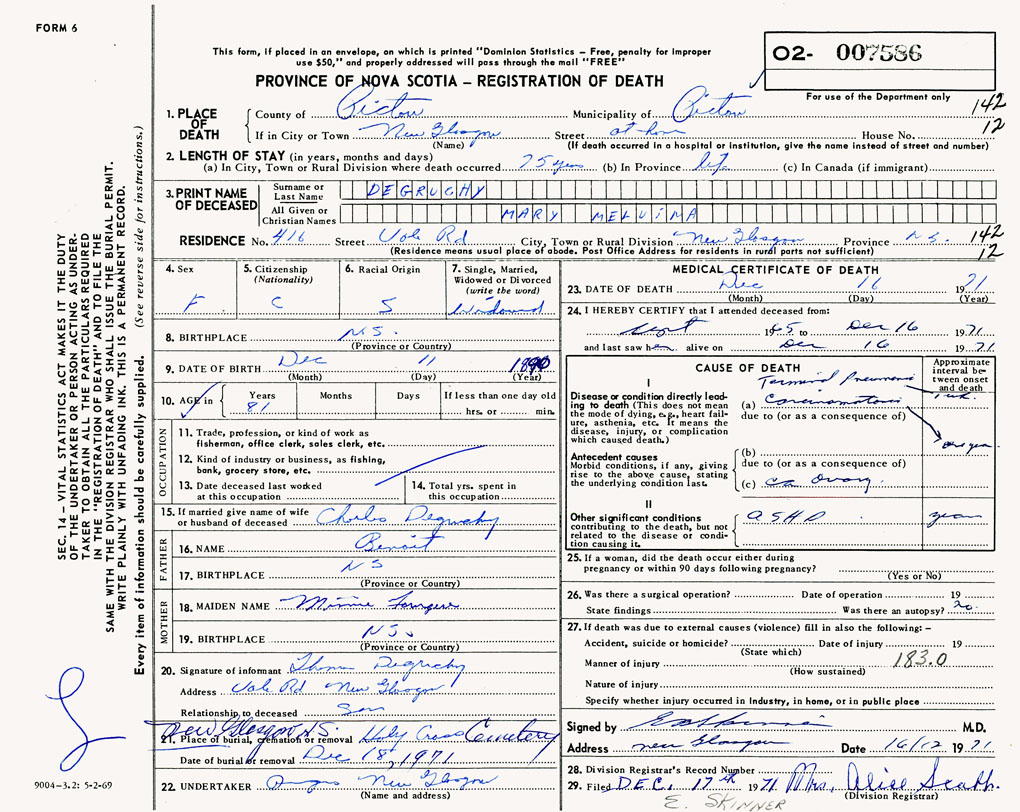 FORM 6
This form, if placed in an envelope, on which is printed "Dominion Statistics – Free, penalty for improper
use $50," and properly addressed will pass through the mail "FREE"
02- 007586
PROVINCE OF NOVA SCOTIA – REGISTRATION OF DEATH
For use of the Department only
142
12
1. PLACE OF DEATH
County of Pictou Municipality of Pictou
If in City or Town New Glasgow Street at home House No.
(Name) (If death occurred in a hospital or institution, give the name instead of street and number)
2. LENGTH OF STAY (in years, months and days)
(a) In City, Town or Rural Division where death occurred 75 yrs (b) In Province life (c) In Canada (if immigrant)
3. PRINT NAME OF DECEASED
Surname or Last Name DEGRUCHY
All Given or Christian Names MARY MELVINA
RESIDENCE No. 416 Street Vale Rd City, Town or Rural Division New Glasgow Province N.S. 142
(Residence means usual place of abode. Post Office Address for residents in rural parts not sufficient) 12
4. Sex
F
5. Citizenship (Nationality)
C
6. Racial Origin
S
7. Single, Married, Widowed or Divorced (write the word)
Widowed
8. BIRTHPLACE N.S.
(Province or Country)
9. DATE OF BIRTH Dec 11 1890
(Month) (Day) (Year)
10. AGE in Years Months Days If less than one day old
81 hrs. or min.
OCCUPATION
11. Trade, profession, or kind of work as
fisherman, office clerk, sales clerk, etc.
12. Kind of industry or business, as fishing,
bank, grocery store, etc.
13. Date deceased last worked
at this occupation
14. Total yrs. spent in
this occupation
15. If married give name of wife
or husband of deceased Charles Degruchy
FATHER
16. NAME Benoit
17. BIRTHPLACE NS
(Province or Country)
MOTHER
18. MAIDEN NAME Minnie
19. BIRTHPLACE N.S.
(Province or Country)
20. Signature of informant Degruchy
Address Vale Rd New Glasgow
Relationship to deceased Son
New Glasgow N.S.
21. Place of burial, cremation or removal Holy Cross Cemetery
Date of burial or removal Dec 18, 1971
22. UNDERTAKER New Glasgow
(Name and address)
MEDICAL CERTIFICATE OF DEATH
23. DATE OF DEATH Dec 16 1971
(Month) (Day) (Year)
24. I HEREBY CERTIFY that I attended deceased from:
Sept 1965 to Dec 16 1971
and last saw her alive on Dec 16 1971
CAUSE OF DEATH
Approximate interval between onset and death
I
Terminal Pneumonia 1 wk.
Disease or condition directly leading to death (This does not mean the mode of dying, e.g., heart failure, asthenia, etc. It means the disease, injury, or complication which caused death.)
(a) Carcinomatosis
due to (or as a consequence of)
one year
Antecedent causes
Morbid conditions, if any, giving rise to the above cause, stating the underlying condition last.
(b)
due to (or as a consequence of)
(c) Ca Ovary
II
Other significant conditions contributing to the death, but not related to the disease or condition causing it.
ASHD years
25. If a woman, did the death occur either during
pregnancy or within 90 days following pregnancy?
(Yes or No)
26. Was there a surgical operation? Date of operation 19
State findings Was there an autopsy? no.
27. If death was due to external causes (violence) fill in also the following: –
Accident, suicide or homicide? Date of injury 19
(State which)
Manner of injury 183.0
(How sustained)
Nature of injury
Specify whether injury occurred in Industry, in home, or in public place
Signed by M.D.
Address New Glasgow Date 16/12 1971
28. Division Registrar's Record Number
29. Filed DEC. 17th 1971 Mrs. Alise
(Division Registrar)
E. SKINNER
SEC. 14 – VITAL STATISTICS ACT MAKES IT THE DUTY
OF THE UNDERTAKER OR PERSON ACTING AS UNDER-
TAKER TO OBTAIN ALL THE PARTICULARS REQUIRED
IN THE "REGISTRATION OF DEATH" AND TO FILE THE
SAME WITH THE DIVISION REGISTRAR WHO SHALL ISSUE THE BURIAL PERMIT.
WRITE PLAINLY WITH UNFADING INK. THIS IS A PERMANENT RECORD.
Every item of information should be carefully supplied. (See reverse side for instructions.)
9004–3.2: 5-2-69